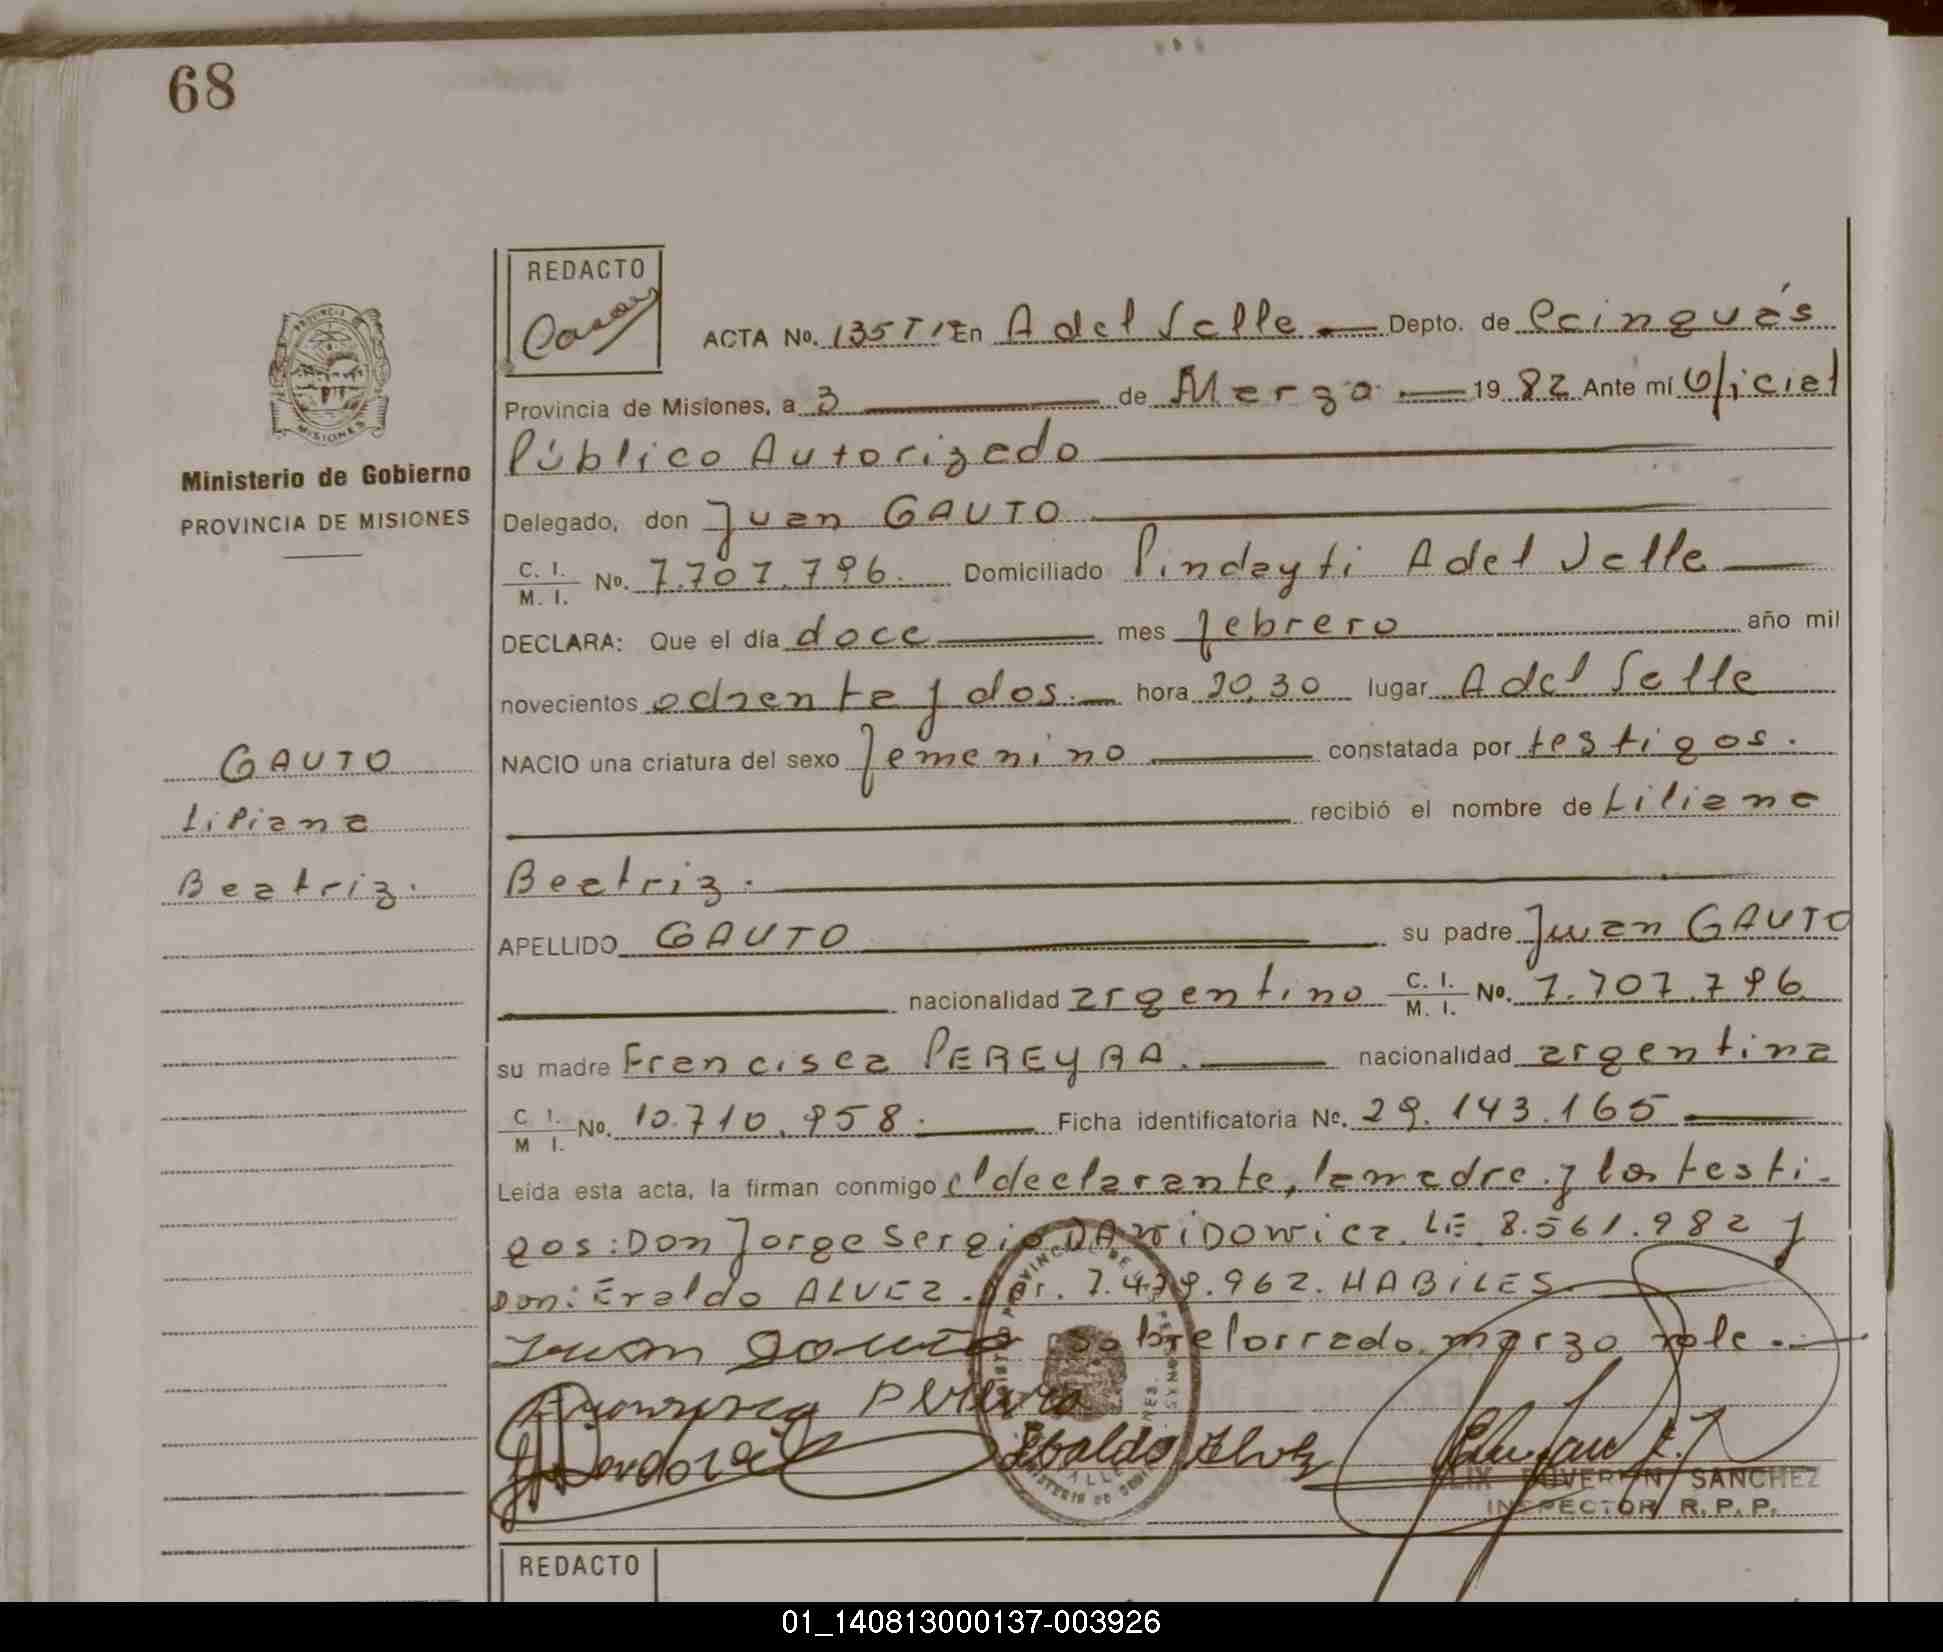 68
REDACTO
ACTA No. 135 T I En A del Valle Depto. de Cainguás
Provincia de Misiones, a 3 de Marzo 19 82 Ante mí Oficial
Público Autorizado
Ministerio de Gobierno
PROVINCIA DE MISIONES
Delegado, don Juan GAUTO
C. I. / M. I. No. 7.707.796. Domiciliado Pindayti A del Valle
DECLARA: Que el día doce mes febrero año mil
novecientos ochenta y dos. hora 20,30 lugar A del Valle
NACIO una criatura del sexo femenino constatada por testigos.
recibió el nombre de Liliana
Beatriz.
GAUTO
Liliana
Beatriz.
APELLIDO GAUTO su padre Juan GAUTO
nacionalidad argentino C. I. / M. I. No. 7.707.796
su madre Francisca PEREYRA. nacionalidad argentina
C I. / M I. No. 10.710.958. Ficha identificatoria No. 29.143.165
Leída esta acta, la firman conmigo el declarante, la madre y los testi-
gos: Don Jorge Sergio DAWIDOWICZ. LE. 8.561.982 y
don: Eraldo ALVEZ. 7.479.962. HABILES
Juan Gauto sobreborrado marzo vale.
Francisca Pereyra
SANCHEZ
INSPECTOR R. P. P.
REDACTO
01_140813000137-003926